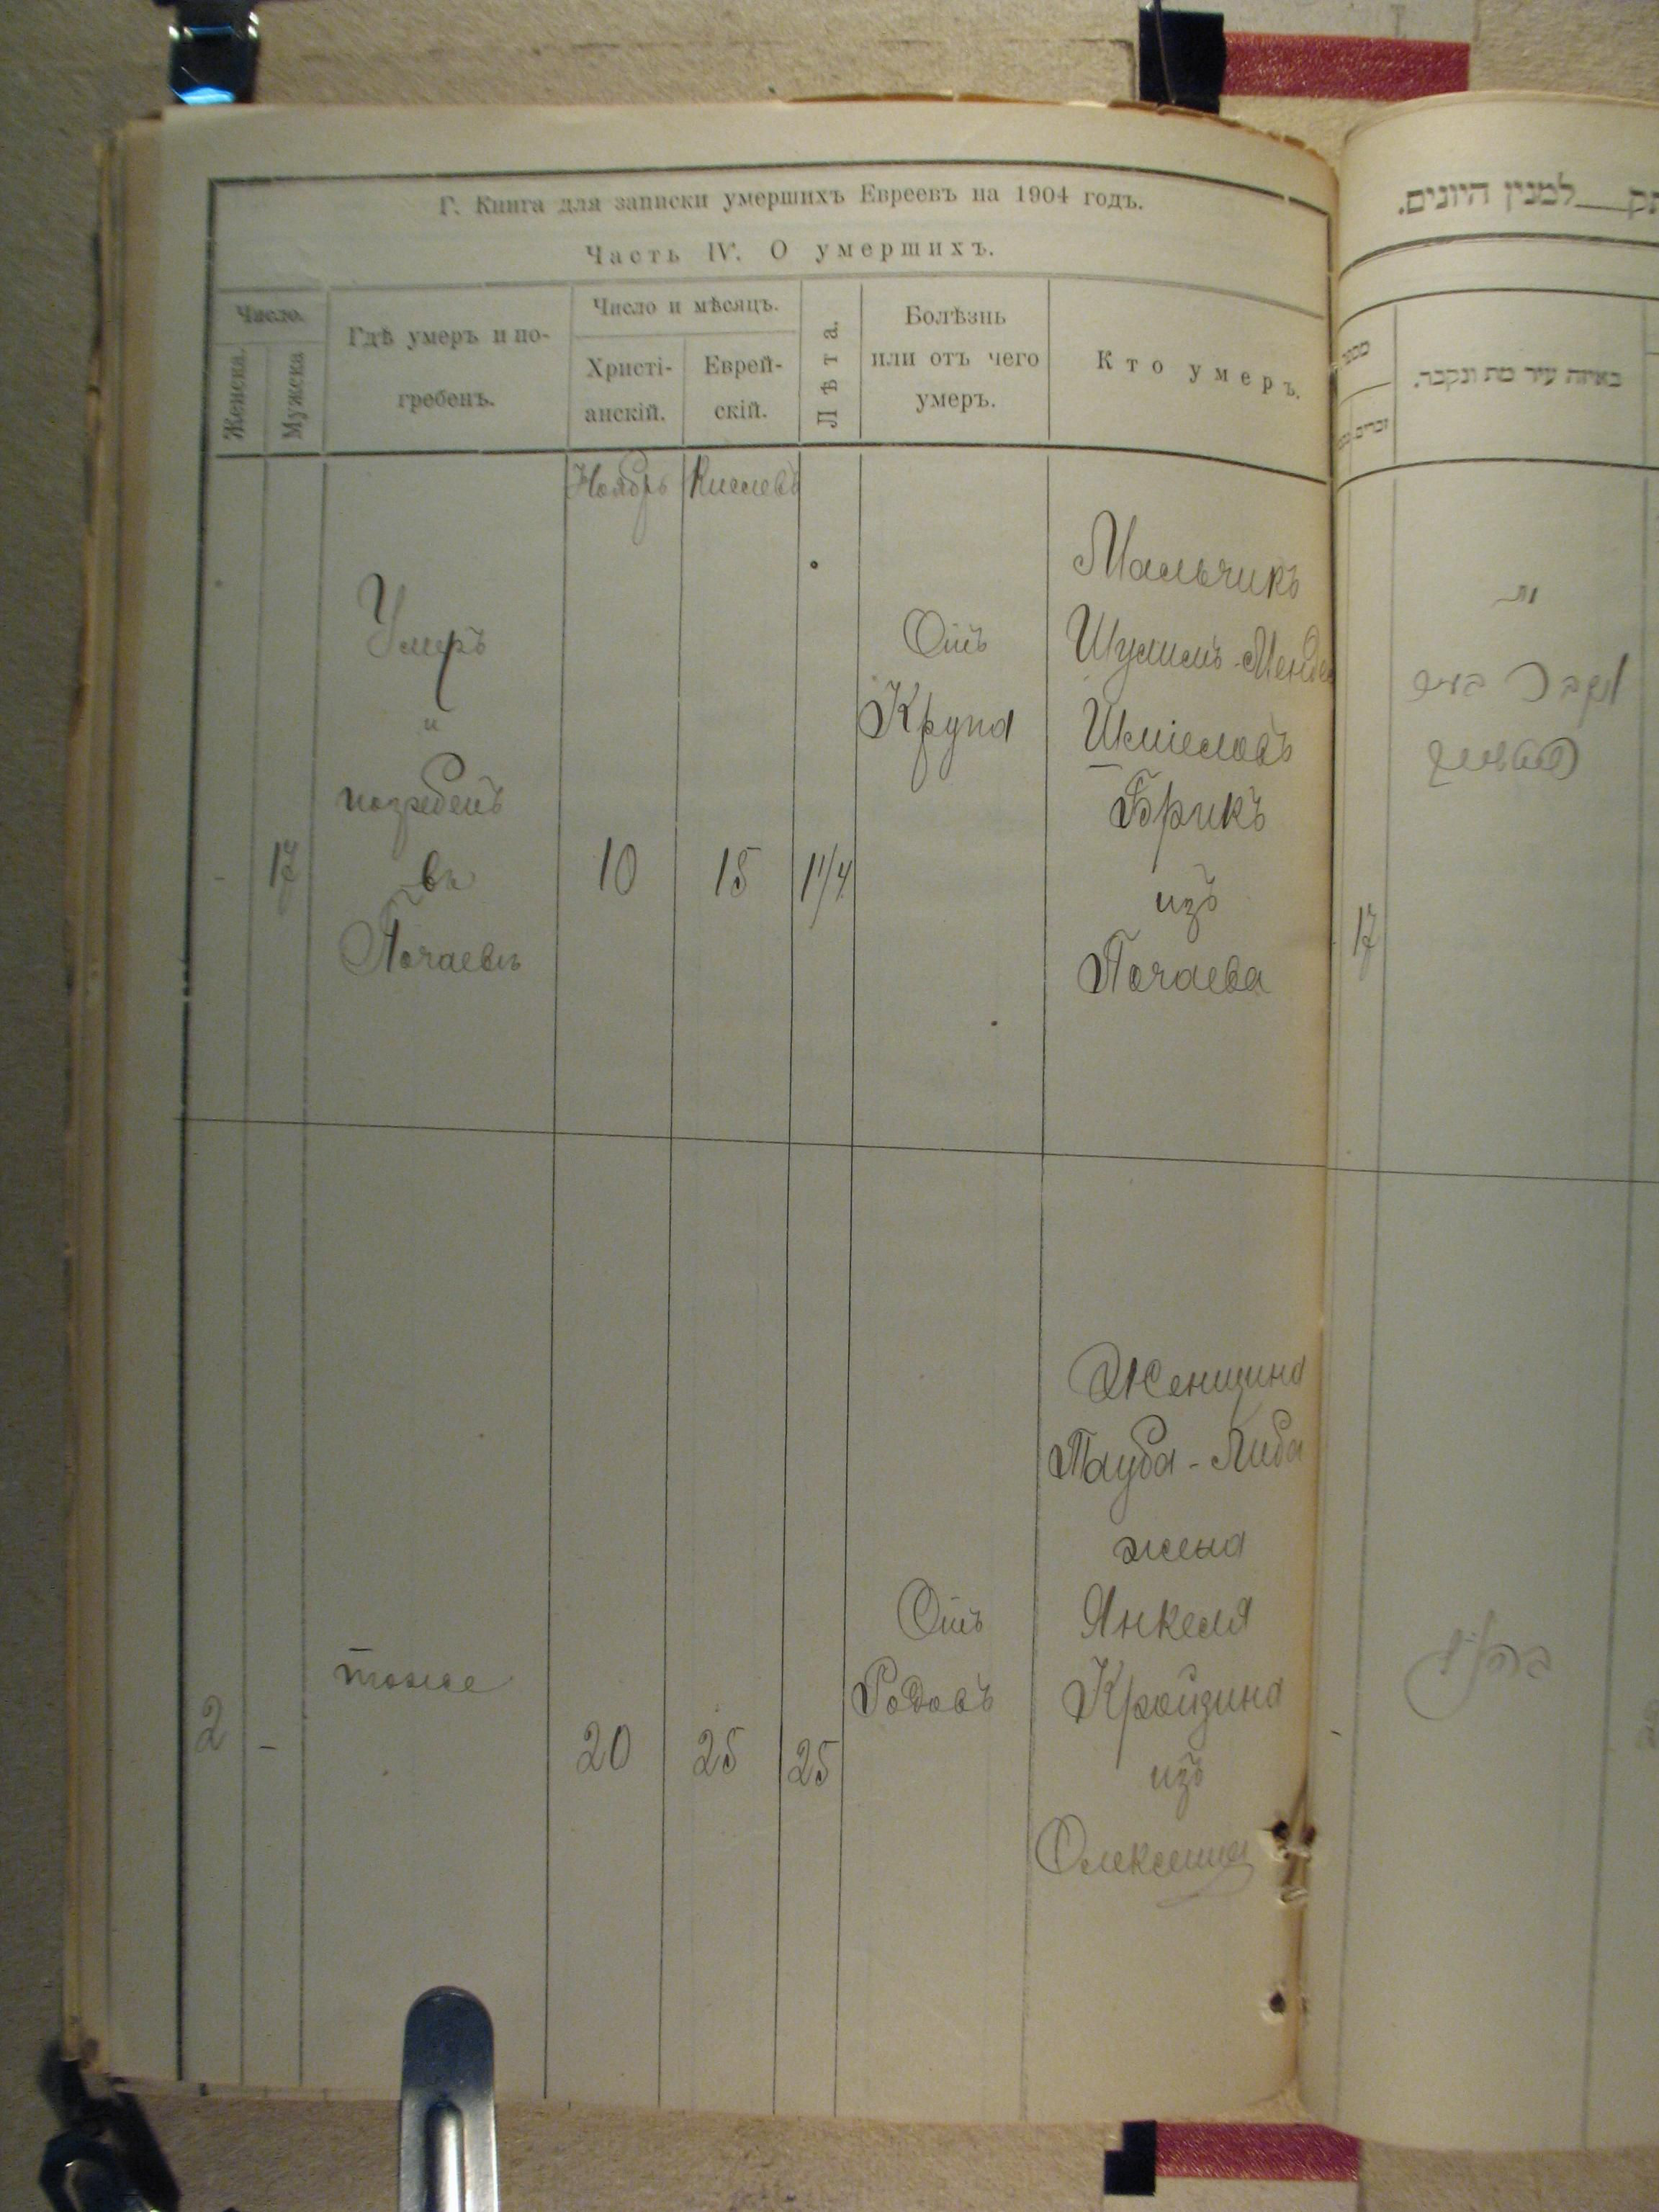 Г. Книга для записки умершихъ Евреевъ на 1904 годъ.
Часть IV. О умершихъ.
Число.
Женска.
Мужска
Гдѣ умеръ и по-
гребенъ.
Число и мѣсяцъ.
Христі-
анскій.
Еврей-
скій.
Лѣта.
Болѣзнь
или отъ чего
умеръ.
Кто умеръ.
Ноябрь Кислевъ
-
17
Умеръ
и
погребенъ
въ
Почаевѣ
10
15
1 1/4
Отъ
Крупа
Мальчикъ
Шулимъ-Мендель
Шміеловъ
Брикъ
изъ
Почаева
2
-
тоже
20
25
25
Отъ
Родовъ
Женщина
Тауба-Либа
жена
Янкеля
Кройзина
изъ
Олексинца
למנין היונים.
מספר
זכרים
באיזה עיר מת ונקבר.
מת
ונקבר בעיר
17
-